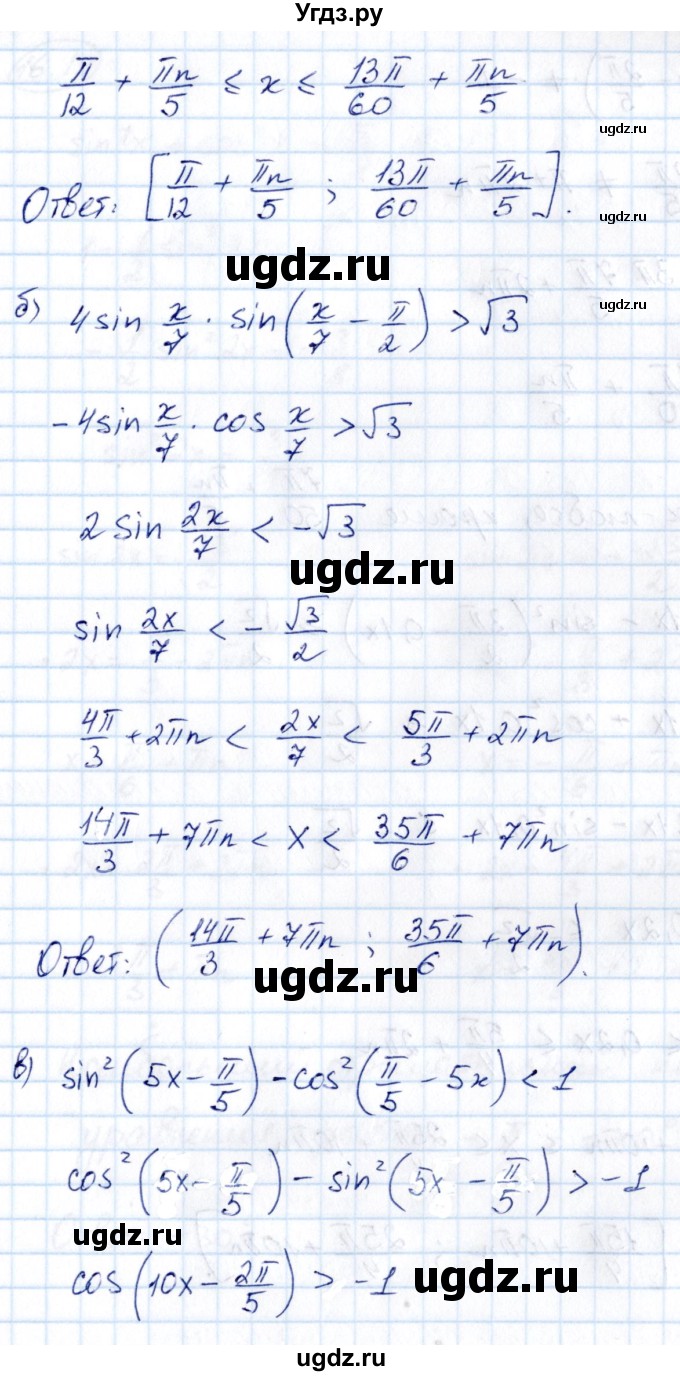 Угдз.ру
π/12 + πn/5 ≤ x ≤ 13π/60 + πn/5
ugdz.ru
Ответ: [π/12 + πn/5 ; 13π/60 + πn/5].
ugdz.ru
ugdz.ru
ugdz.ru
б) 4 sin x/7 · sin(x/7 − π/2) > √3
−4 sin x/7 · cos x/7 > √3
ugdz.ru
2 sin 2x/7 < −√3
ugdz.ru
sin 2x/7 < −√3/2
4π/3 + 2πn < 2x/7 < 5π/3 + 2πn
ugdz.ru
14π/3 + 7πn < x < 35π/6 + 7πn
Ответ: (14π/3 + 7πn ; 35π/6 + 7πn).
ugdz.ru
в) sin²(5x − π/5) − cos²(π/5 − 5x) < 1
cos²(5x − π/5) − sin²(5x − π/5) > −1
ugdz.ru
cos(10x − 2π/5) > −1
ugdz.ru
ugdz.ru